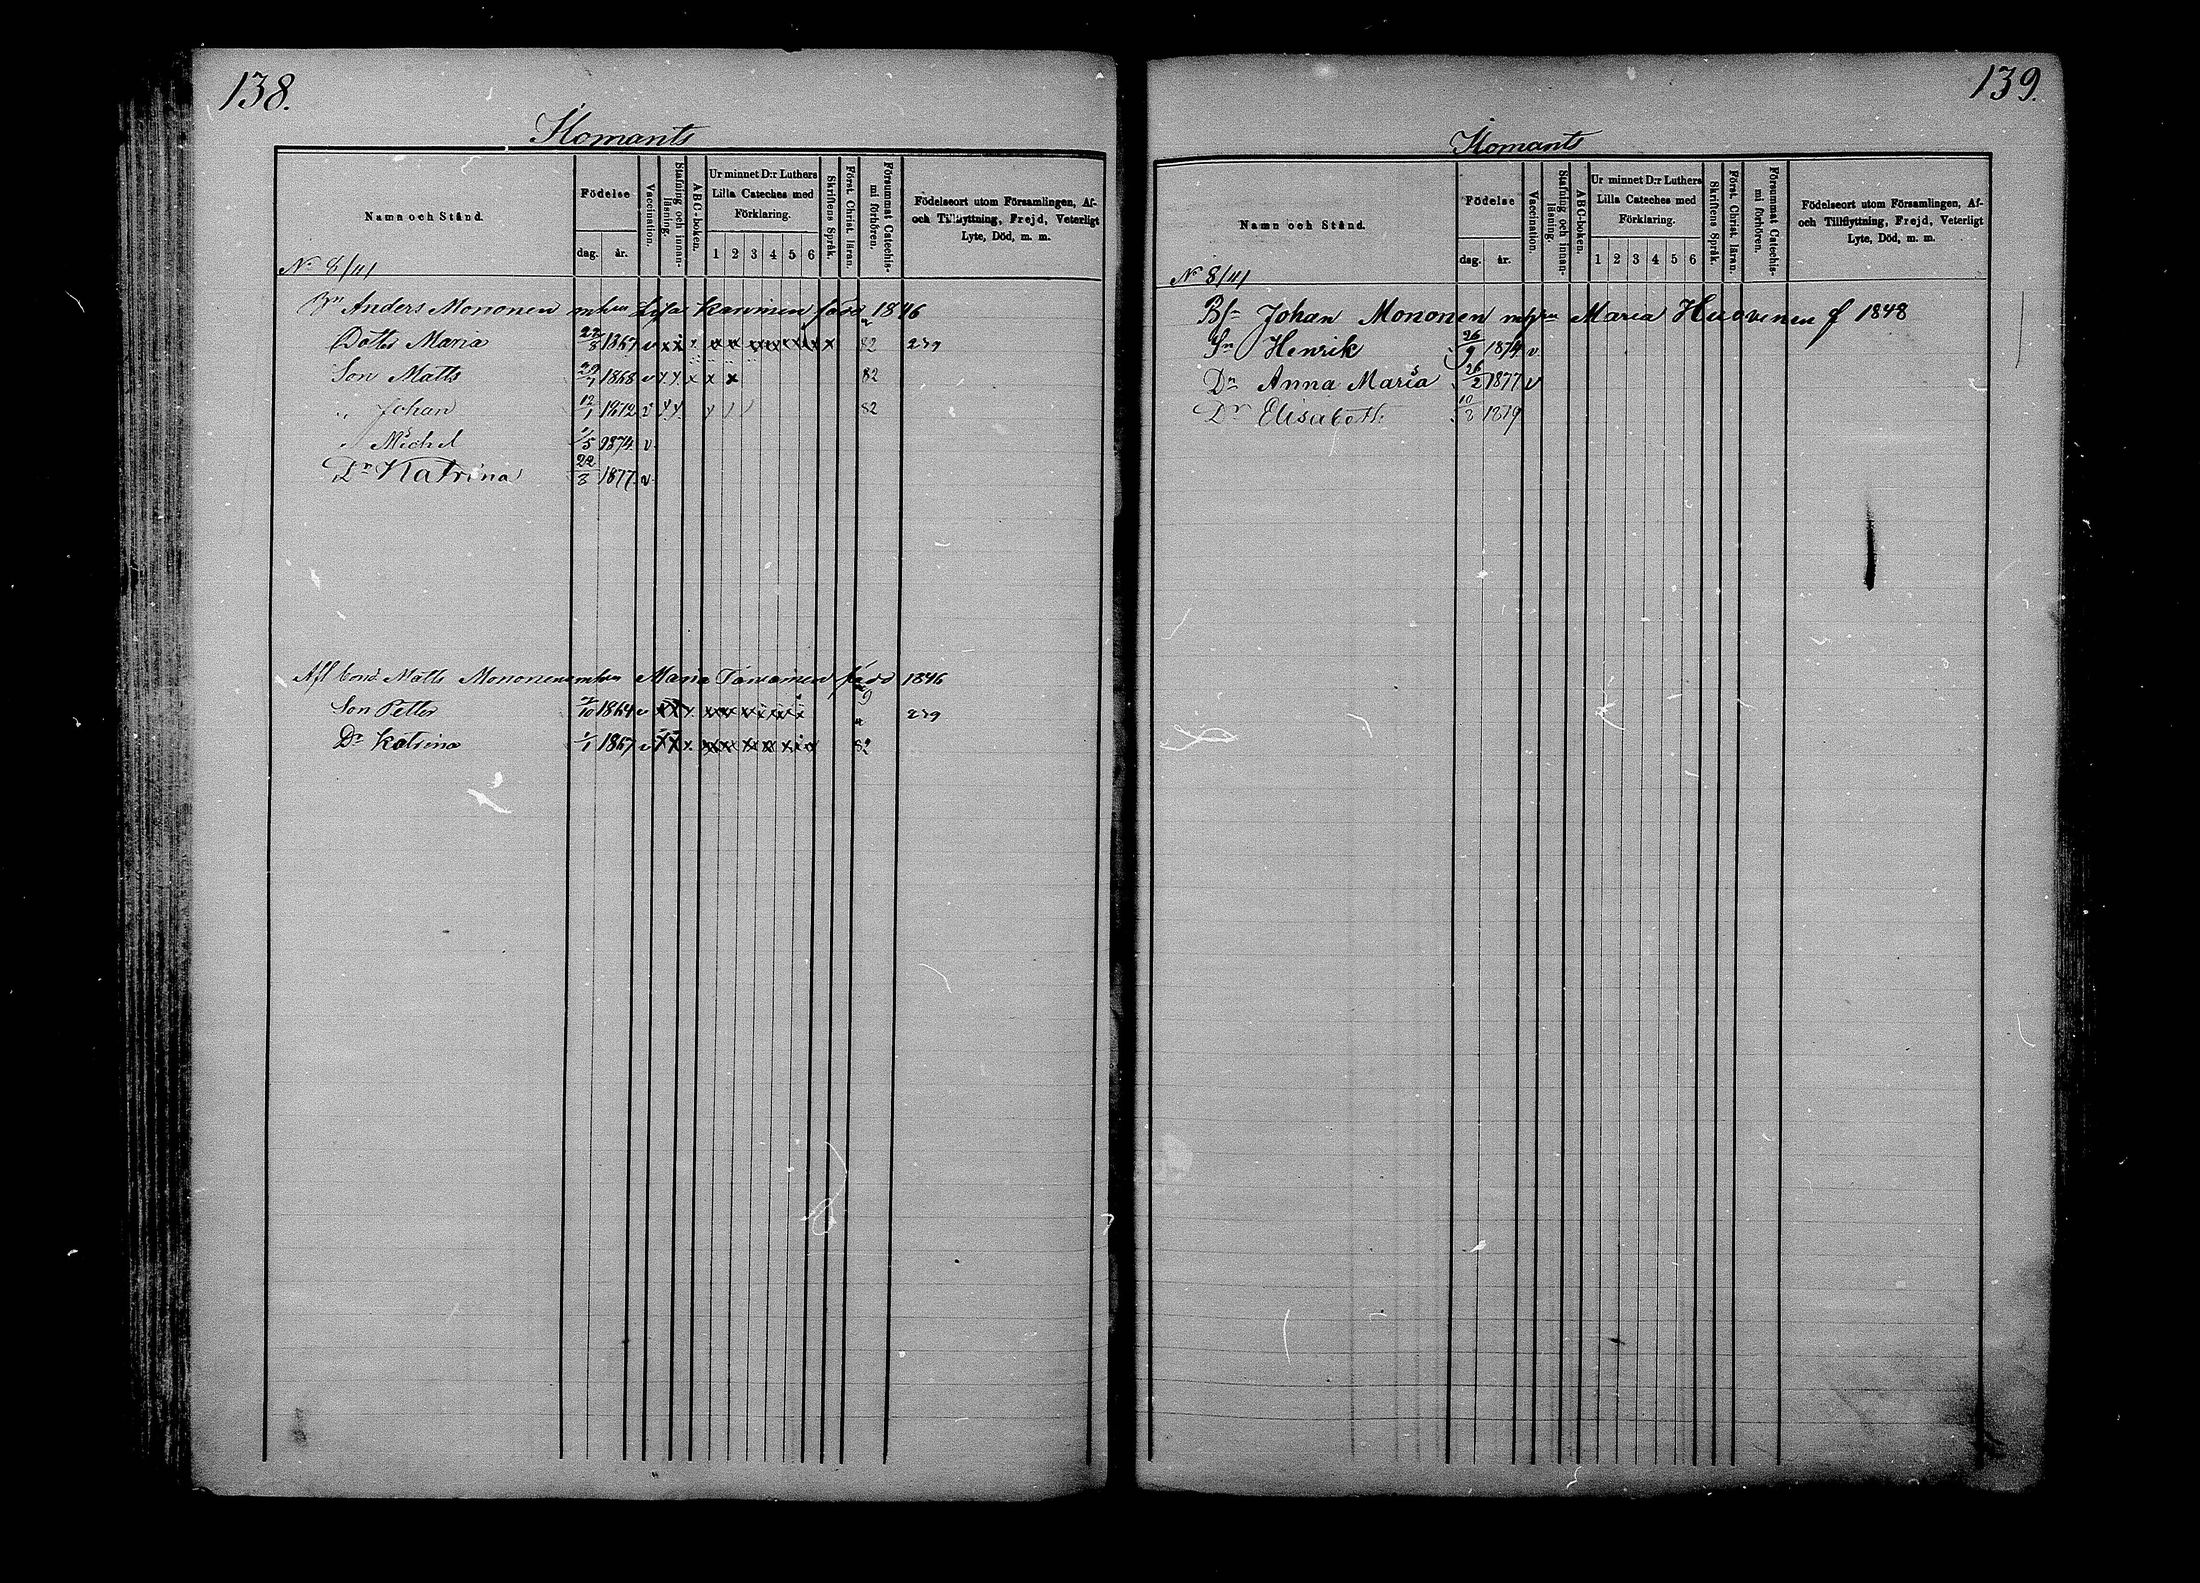 138.
Ilomants
Namn och Stånd.
Födelse
dag.
år.
Vaccination.
Stafning och innan-
läsning.
ABC-boken.
Ur minnet D:r Luthers
Lilla Cateches med
Förklaring.
1 2 3 4 5 6
Skriftens Språk.
Först. Christ. läran.
Försummat Catechis-
mi förhören.
Födelseort utom Församlingen, Af-
och Tillflyttning, Frejd, Veterligt
Lyte, Död, m. m.
N 8/41
Anders Mononen född 1846
Dotter Maria 1867 v 82 279
Son Matts 1868 v 82
" Johan 12/1 1872 v 82
" Michel 1874 v
Dr Katrina 22/8 1877 v
Matts Mononen Maria född 1846
Son Petter 1864 v 279
Dr Katrina 1/1 1867 v 82
139.
Ilomants
Namn och Stånd.
Födelse
dag.
år.
Vaccination.
Stafning och innan-
läsning.
ABC-boken.
Ur minnet D:r Luthers
Lilla Cateches med
Förklaring.
1 2 3 4 5 6
Skriftens Språk.
Först. Christ. läran.
Försummat Catechis-
mi förhören.
Födelseort utom Församlingen, Af-
och Tillflyttning, Frejd, Veterligt
Lyte, Död, m. m.
N 8/41
Johan Mononen Maria Huovinen f 1848
Sn Henrik 26/9 1874 v
Dr Anna Maria 26/2 1877 v
Dr Elisabeth 1879